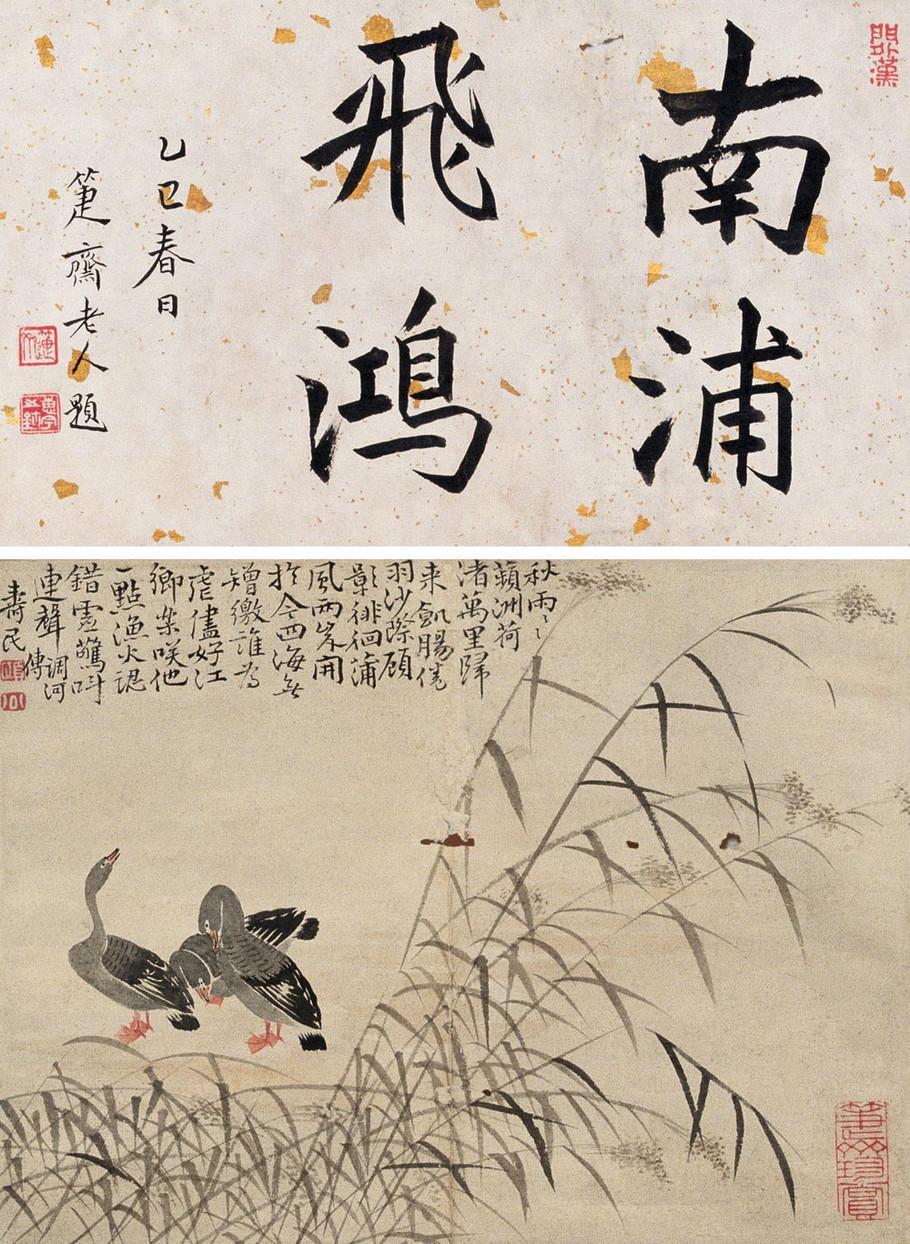 門外漢
南浦
飛鴻
乙巳春日
箑齋老人題
秋雨〻
蘋洲荷
渚萬里歸
來飢腸倦
羽沙際顧
影徘徊蒲
風兩岸開
於今四海無
矰繳誰為
虐儘好江
鄉樂咲他
一點漁火誤
錯驚叫
連聲 調河傳
壽民